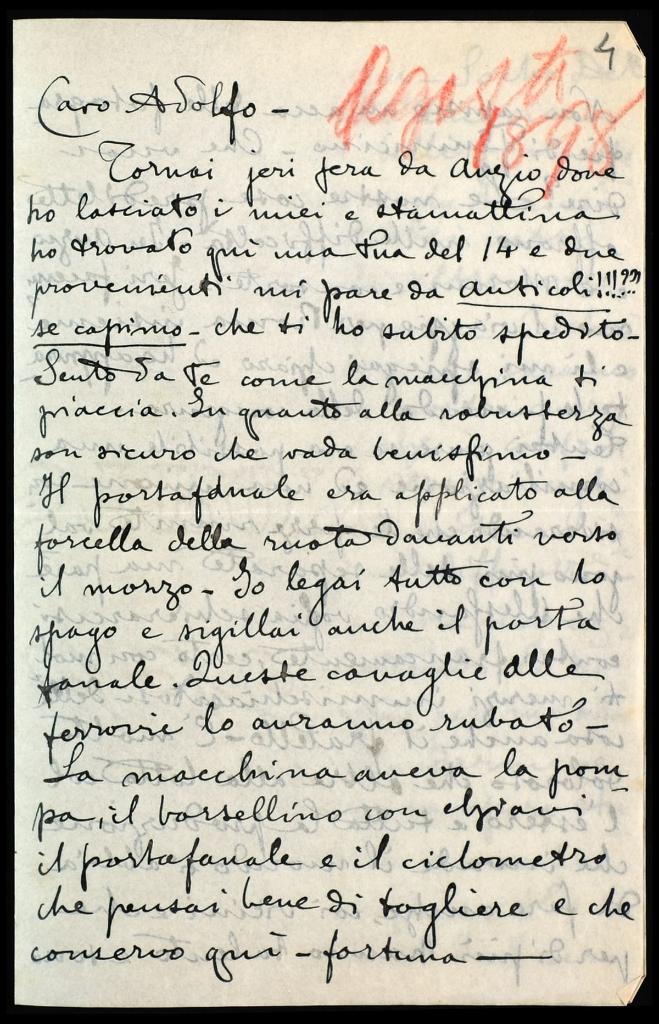 4
Agosto
1898
Caro Adolfo –
Tornai jeri sera da Anzio dove
ho lasciato i miei e stamattina
ho trovato qui una tua del 14 e due
provenienti mi pare da Anticoli!!!???
se capimo – che ti ho subito spedito –
Sento da te come la macchina ti
piaccia. In quanto alla robustezza
son sicuro che vada benissimo –
Il portafanale era applicato alla
forcella della ruota davanti verso
il mozzo – Io legai tutto con lo
spago e sigillai anche il porta
fanale. Queste canaglie delle
ferrovie lo avranno rubato –
La macchina aveva la pom-
pa, il borsellino con chiavi
il portafanale e il ciclometro
che pensai bene di togliere e che
conservo quì – fortuna —